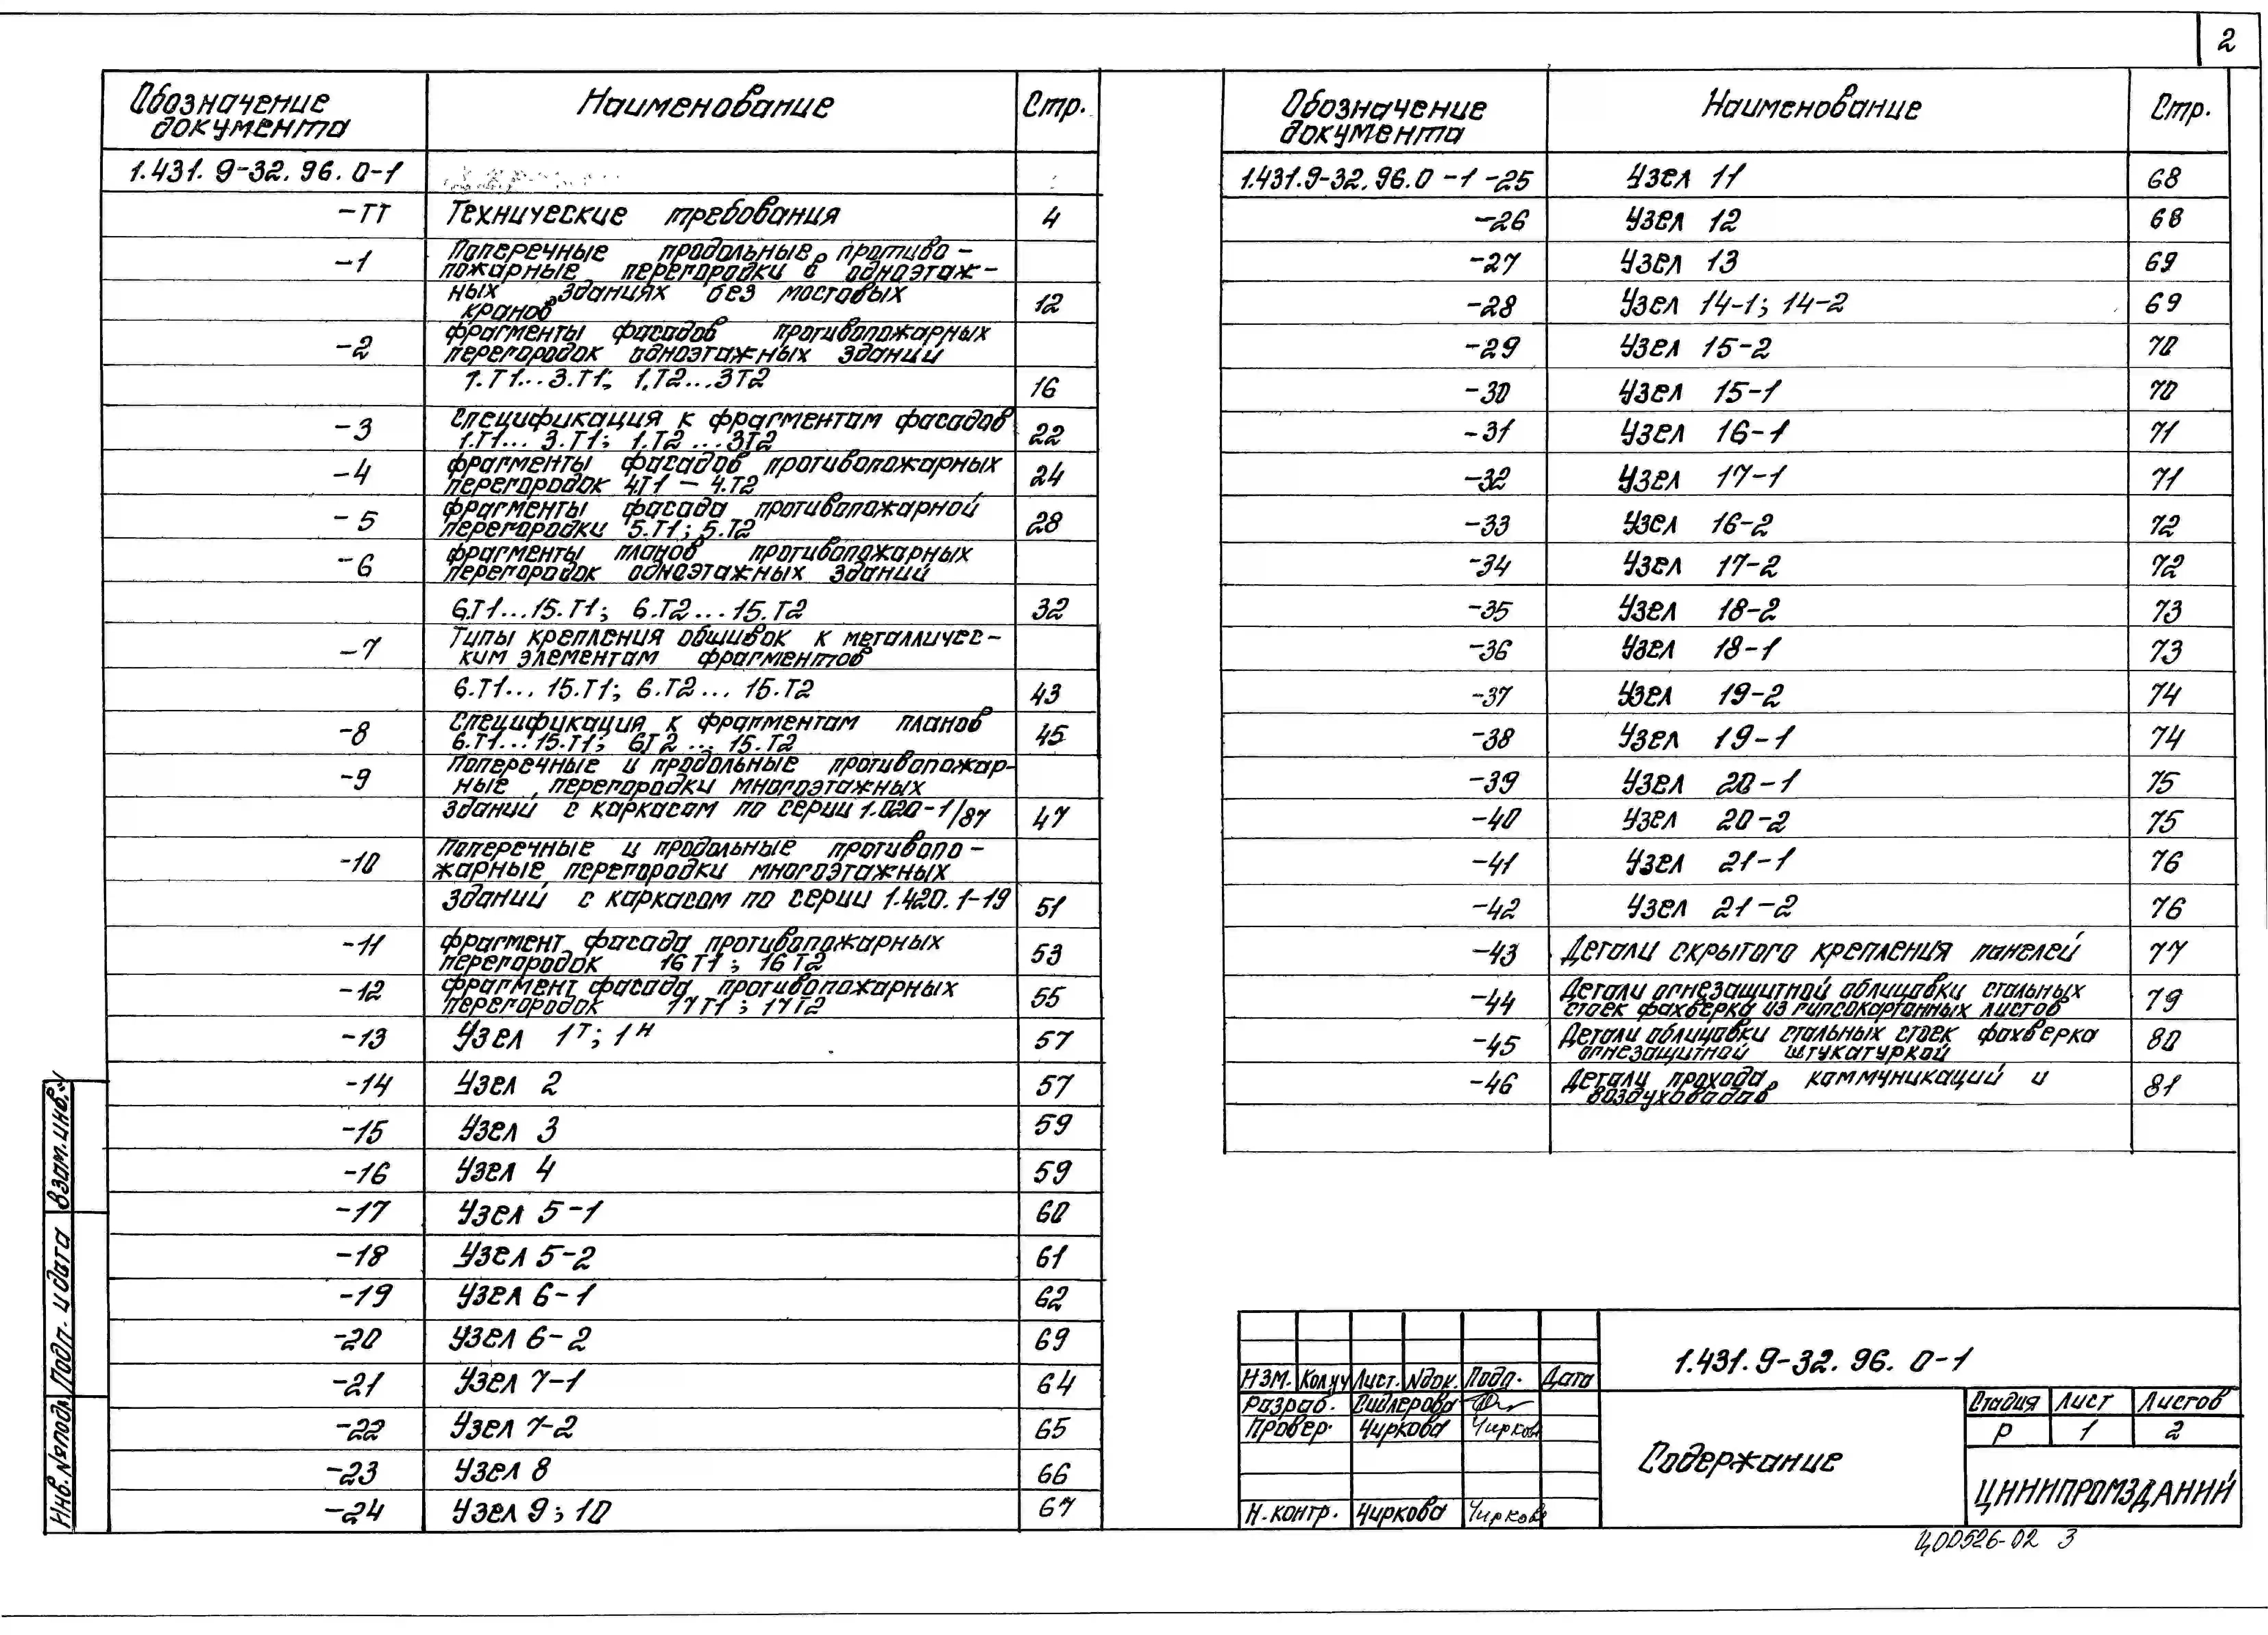 2
Обозначение документа Наименование Стр.
1.431.9-32.96.0-1
-ТТ Технические требования 4
-1 Поперечные продольные противо-
пожарные перегородки в одноэтаж-
ных зданиях без мостовых
кранов 12
-2 фрагменты фасадов противопожарных
перегородок одноэтажных зданий
1.Т1...3.Т1; 1.Т2...3Т2 16
-3 Спецификация к фрагментам фасадов
1.Т1... 3.Т1; 1.Т2...3Т2 22
-4 фрагменты фасадов противопожарных
перегородок 4.Т1 – 4.Т2 24
-5 фрагменты фасада противопожарной
перегородки 5.Т1; 5.Т2 28
-6 фрагменты планов противопожарных
перегородок одноэтажных зданий
6.Т1...15.Т1; 6.Т2...15.Т2 32
-7 Типы крепления обшивок к металличес-
ким элементам фрагментов
6.Т1... 15.Т1; 6.Т2... 15.Т2 43
-8 Спецификация к фрагментам планов
6.Т1...15.Т1; 6Т2 ... 15.Т2 45
-9 Поперечные и продольные противопожар-
ные перегородки многоэтажных
зданий с каркасом по серии 1.020-1/87 47
-10 Поперечные и продольные противопо-
жарные перегородки многоэтажных
зданий с каркасом по серии 1.420.1-19 51
-11 фрагмент фасада противопожарных
перегородок 16Т1; 16Т2 53
-12 фрагмент фасада противопожарных
перегородок 17Т1; 17Т2 55
-13 Узел 1Т; 1Н 57
-14 Узел 2 57
-15 Узел 3 59
-16 Узел 4 59
-17 Узел 5-1 60
-18 Узел 5-2 61
-19 Узел 6-1 62
-20 Узел 6-2 69
-21 Узел 7-1 64
-22 Узел 7-2 65
-23 Узел 8 66
-24 Узел 9; 10 67
Обозначение документа Наименование Стр.
1.431.9-32.96.0-1 -25 Узел 11 68
-26 Узел 12 68
-27 Узел 13 69
-28 Узел 14-1; 14-2 69
-29 Узел 15-2 70
-30 Узел 15-1 70
-31 Узел 16-1 71
-32 Узел 17-1 71
-33 Узел 16-2 72
-34 Узел 17-2 72
-35 Узел 18-2 73
-36 Узел 18-1 73
-37 Узел 19-2 74
-38 Узел 19-1 74
-39 Узел 20-1 75
-40 Узел 20-2 75
-41 Узел 21-1 76
-42 Узел 21-2 76
-43 Детали скрытого крепления панелей 77
-44 Детали огнезащитной облицовки стальных
стоек фахверка из гипсокартонных листов 79
-45 Детали облицовки стальных стоек фахверка
огнезащитной штукатуркой 80
-46 Детали прохода коммуникаций и
воздуховодов 81
Инв. № подл. Подп. и дата Взам. инв. №
Изм. Кол.уч Лист. № док. Подп. Дата
Разраб. Сидлерова
Провер. Чиркова Чирков
Н.контр. Чиркова Чиркова
1.431.9-32.96.0-1
Содержание
Стадия Лист Листов
Р 1 2
ЦНИИПРОМЗДАНИЙ
Ц00526-02 3